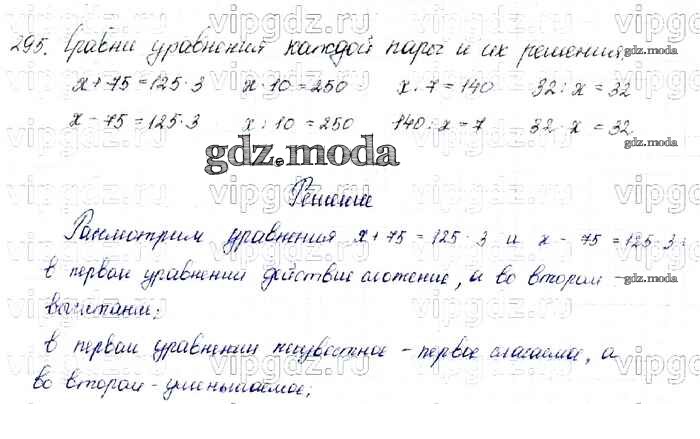 295. Сравни уравнения каждой пары и их решения
x + 75 = 125 · 3 x · 10 = 250 x · 7 = 140 32 : x = 32
x - 75 = 125 · 3 x : 10 = 250 140 : x = 7 32 · x = 32
gdz.moda
Решение
Рассмотрим уравнения x + 75 = 125 · 3 и x - 75 = 125 · 3:
в первом уравнении действие сложение, а во втором -
вычитание;
в первом уравнении неизвестное - первое слагаемое, а
во втором - уменьшаемое;
vipgdz.ru